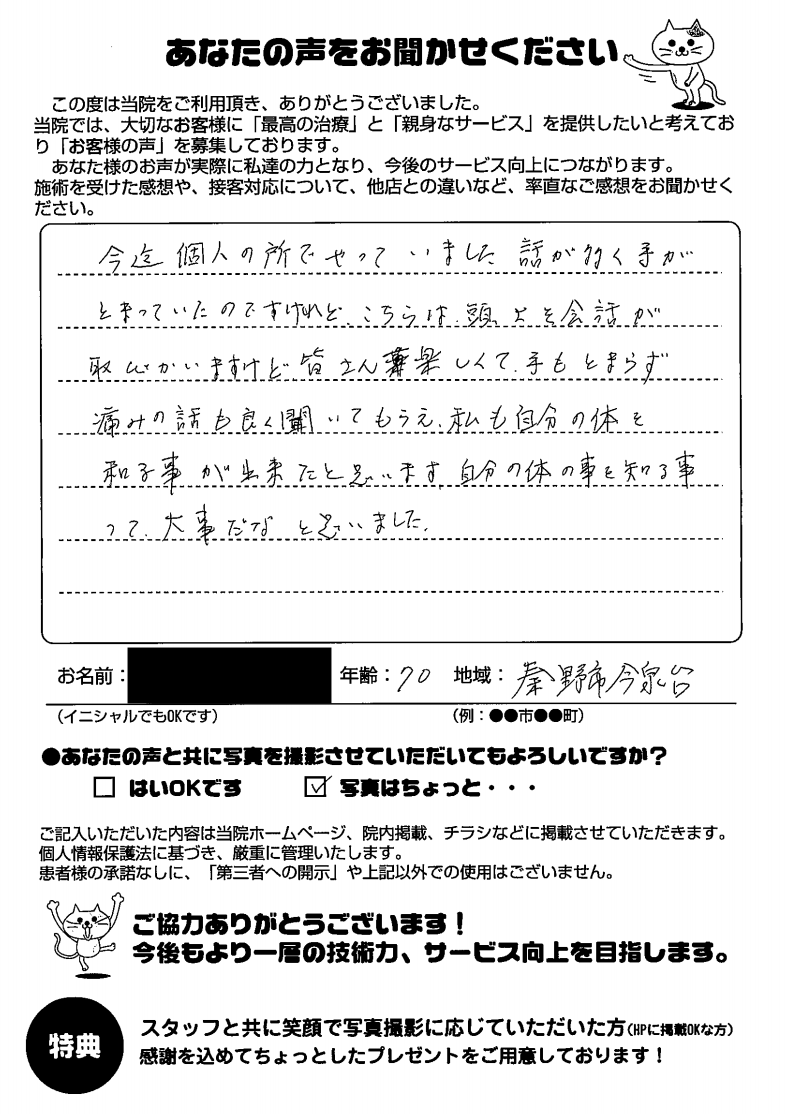 あなたの声をお聞かせください
この度は当院をご利用頂き、ありがとうございました。
当院では、大切なお客様に「最高の治療」と「親身なサービス」を提供したいと考えてお
り「お客様の声」を募集しております。
あなた様のお声が実際に私達の力となり、今後のサービス向上につながります。
施術を受けた感想や、接客対応について、他店との違いなど、率直なご感想をお聞かせく
ださい。
今迄個人の所でやっていました話が多く手が
とまっていたのですけれど、こちらは、頭上を会話が
取びかいますけど皆さん楽しくて、手もとまらず
痛みの話も良く聞いてもらえ、私も自分の体を
知る事が出来たと思います。自分の体の事を知る事
って、大事だなと思いました。
お名前： 年齢：70 地域：秦野市今泉台
（イニシャルでもOKです） （例：●●市●●町）
●あなたの声と共に写真を撮影させていただいてもよろしいですか？
□ はいOKです ☑ 写真はちょっと・・・
ご記入いただいた内容は当院ホームページ、院内掲載、チラシなどに掲載させていただきます。
個人情報保護法に基づき、厳重に管理いたします。
患者様の承諾なしに、「第三者への開示」や上記以外での使用はございません。
ご協力ありがとうございます！
今後もより一層の技術力、サービス向上を目指します。
特典
スタッフと共に笑顔で写真撮影に応じていただいた方（HPに掲載OKな方）
感謝を込めてちょっとしたプレゼントをご用意しております！